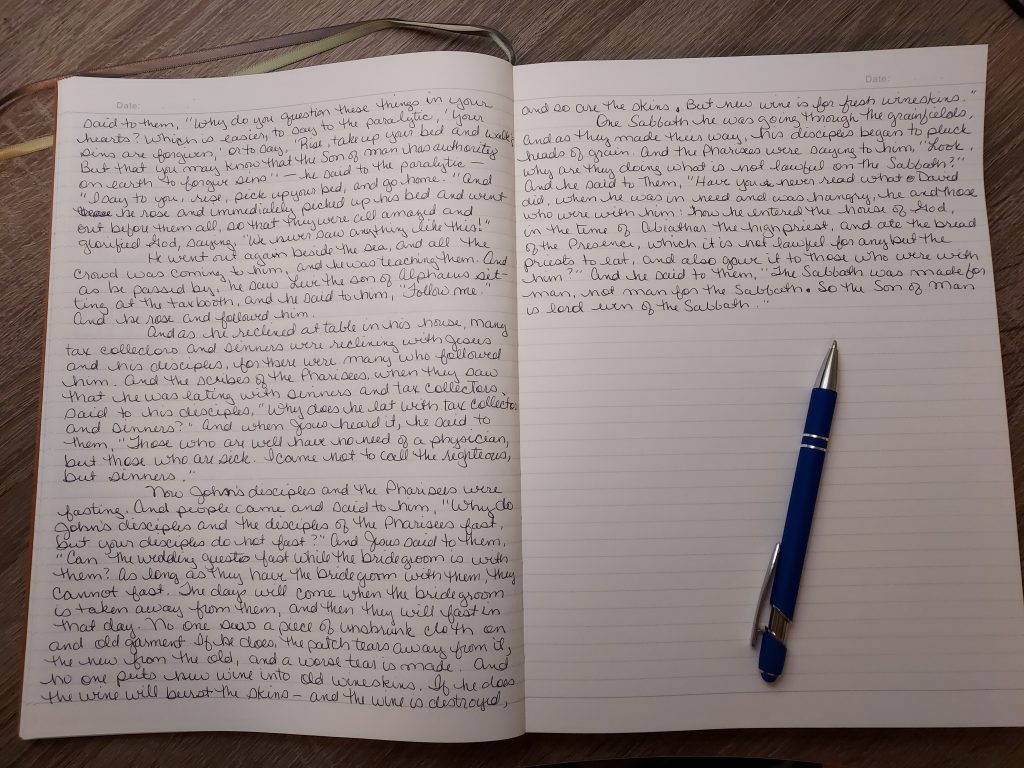 Date:
said to them, "Why do you question these things in your
hearts? Which is easier, to say to the paralytic, 'Your
sins are forgiven,' or to say, 'Rise, take up your bed and walk'?
But that you may know that the Son of man has authority
on earth to forgive sins" — he said to the paralytic —
"I say to you, rise, pick up your bed, and go home." And
he rose and immediately picked up his bed and went
out before them all, so that they were all amazed and
glorified God, saying, "We never saw anything like this!"
He went out again beside the sea, and all the
crowd was coming to him, and he was teaching them. And
as he passed by, he saw Levi the son of Alphaeus sit-
ting at the tax booth, and he said to him, "Follow me."
And he rose and followed him.
And as he reclined at table in his house, many
tax collectors and sinners were reclining with Jesus
and his disciples, for there were many who followed
him. And the scribes of the Pharisees, when they saw
that he was eating with sinners and tax collectors,
said to his disciples, "Why does he eat with tax collectors
and sinners?" And when Jesus heard it, he said to
them, "Those who are well have no need of a physician,
but those who are sick. I came not to call the righteous,
but sinners."
Now John's disciples and the Pharisees were
fasting. And people came and said to him, "Why do
John's disciples and the disciples of the Pharisees fast,
but your disciples do not fast?" And Jesus said to them,
"Can the wedding guests fast while the bridegroom is with
them? As long as they have the bridegroom with them, they
cannot fast. The days will come when the bridegroom
is taken away from them, and then they will fast in
that day. No one sews a piece of unshrunk cloth on
and old garment. If he does, the patch tears away from it,
the new from the old, and a worse tear is made. And
no one puts new wine into old wineskins. If he does
the wine will burst the skins — and the wine is destroyed,
Date:
and so are the skins. But new wine is for fresh wineskins."
One Sabbath he was going through the grainfields,
and as they made their way, his disciples began to pluck
heads of grain. And the Pharisees were saying to him, "Look,
why are they doing what is not lawful on the Sabbath?"
And he said to them, "Have you never read what David
did, when he was in need and was hungry, he and those
who were with him: how he entered the house of God,
in the time of Abiathar the high priest, and ate the bread
of the Presence, which it is not lawful for any but the
priests to eat, and also gave it to those who were with
him?" And he said to them, "The Sabbath was made for
man, not man for the Sabbath. So the Son of Man
is lord even of the Sabbath."